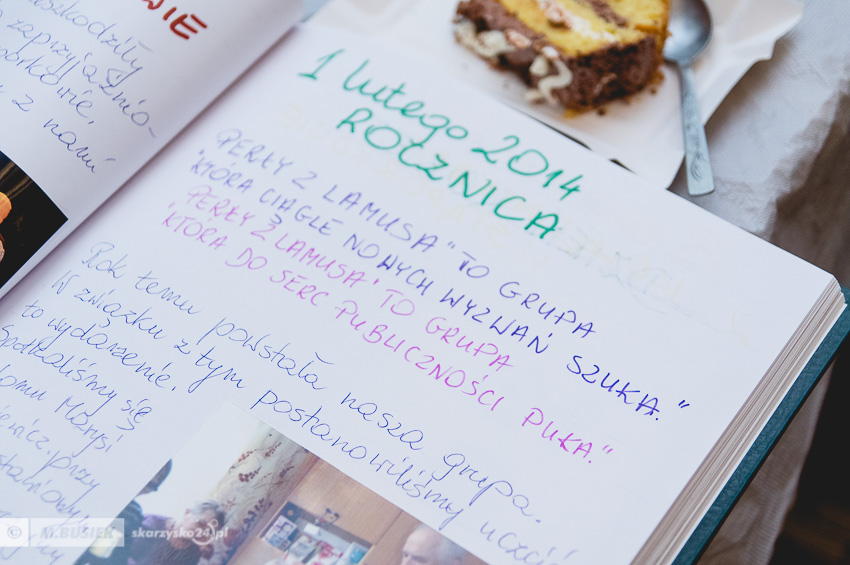 WIE
zaprzyjaźnio-
z nami
1 lutego 2014
ROCZNICA
"PERŁY Z LAMUSA" TO GRUPA
KTÓRA CIĄGLE NOWYCH WYZWAŃ SZUKA."
"PERŁY Z LAMUSA" TO GRUPA
KTÓRA DO SERC PUBLICZNOŚCI PUKA."
Rok temu powstała nasza grupa.
W związku z tym postanowiliśmy uczcić
to wydarzenie.
Spotkaliśmy się
domu Marysi
przy
© M.BUSIEK skarzysko24.pl